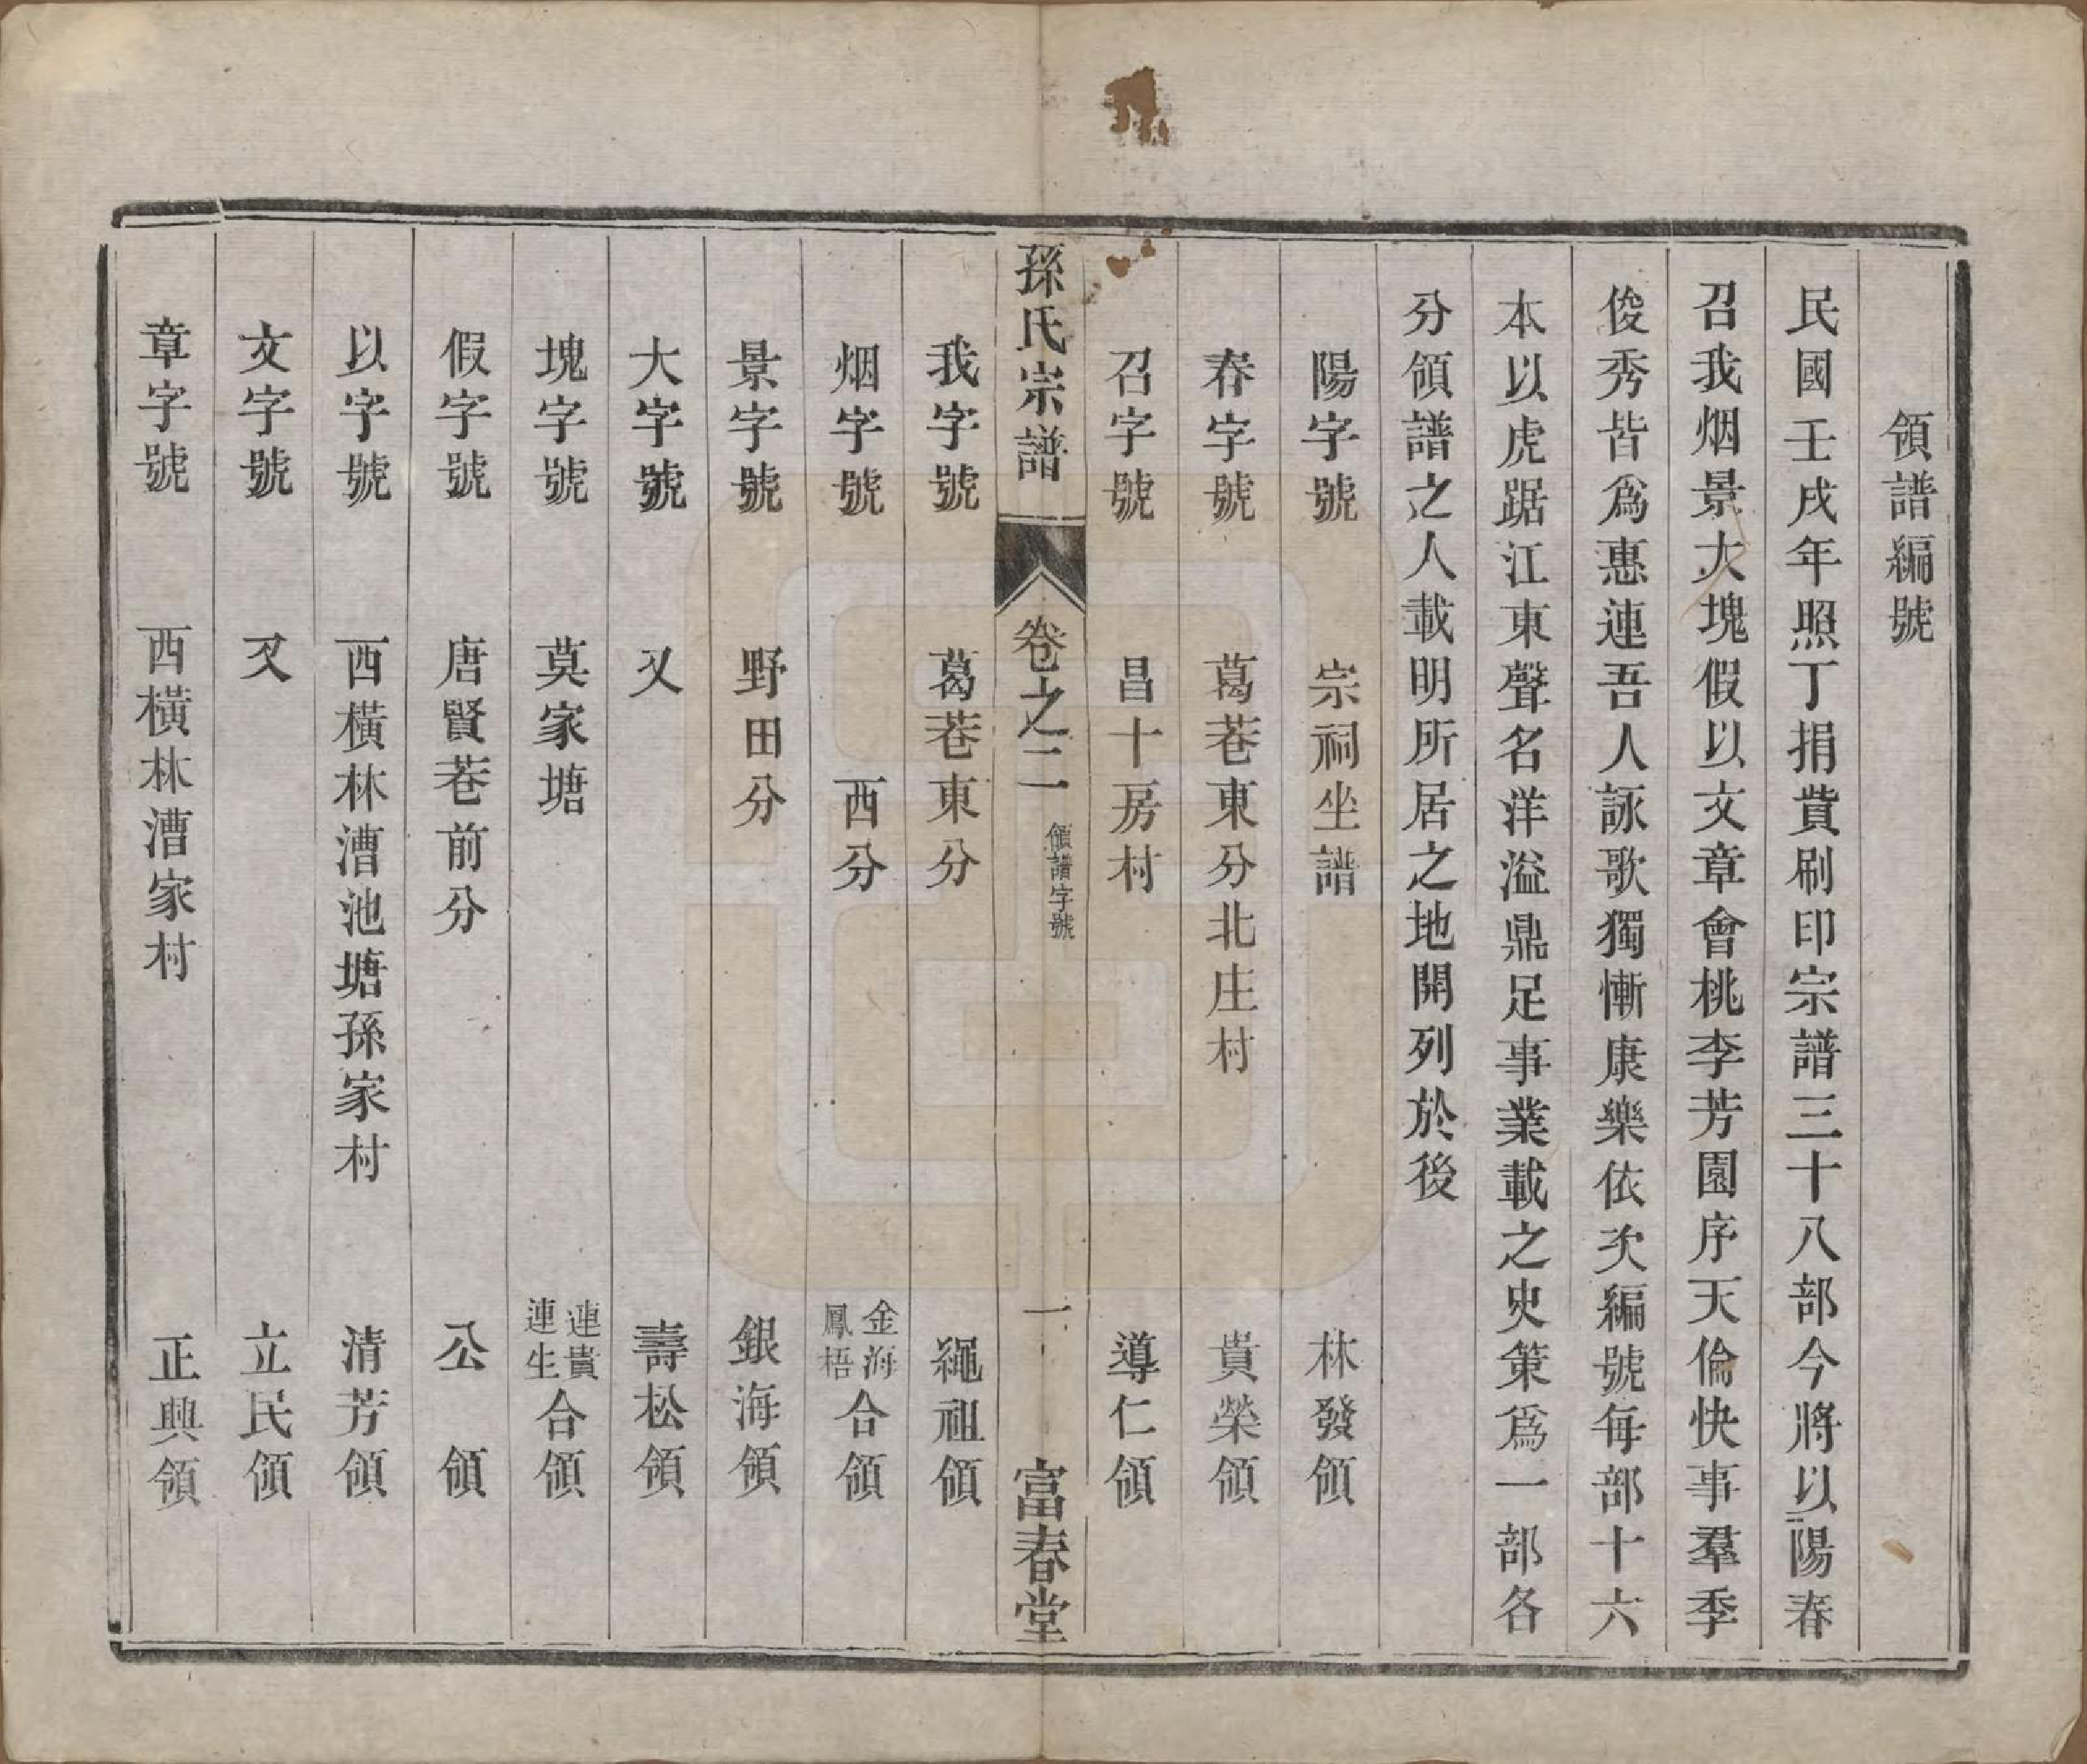 領譜編號
民國壬戌年照丁捐貲刷印宗譜三十八部今將以陽春
召我烟景大塊假以文章會桃李芳園序天倫快事羣季
俊秀皆爲惠連吾人詠歌獨慚康樂依次編號每部十六
本以虎踞江東聲名洋溢鼎足事業載之史策爲一部各
分領譜之人載明所居之地開列於後
陽字號 宗祠坐譜 林發領
春字號 葛巷東分北庄村 貴榮領
召字號 昌十房村 導仁領
孫氏宗譜 卷之二 領譜字號 一 富春堂
我字號 葛巷東分 繩祖領
烟字號 西分 金海鳳梧合領
景字號 野田分 銀海領
大字號 又 壽松領
塊字號 莫家塘 連貴連生合領
假字號 唐賢巷前分 公領
以字號 西橫林漕池塘孫家村 清芳領
文字號 又 立民領
章字號 西橫林漕家村 正興領